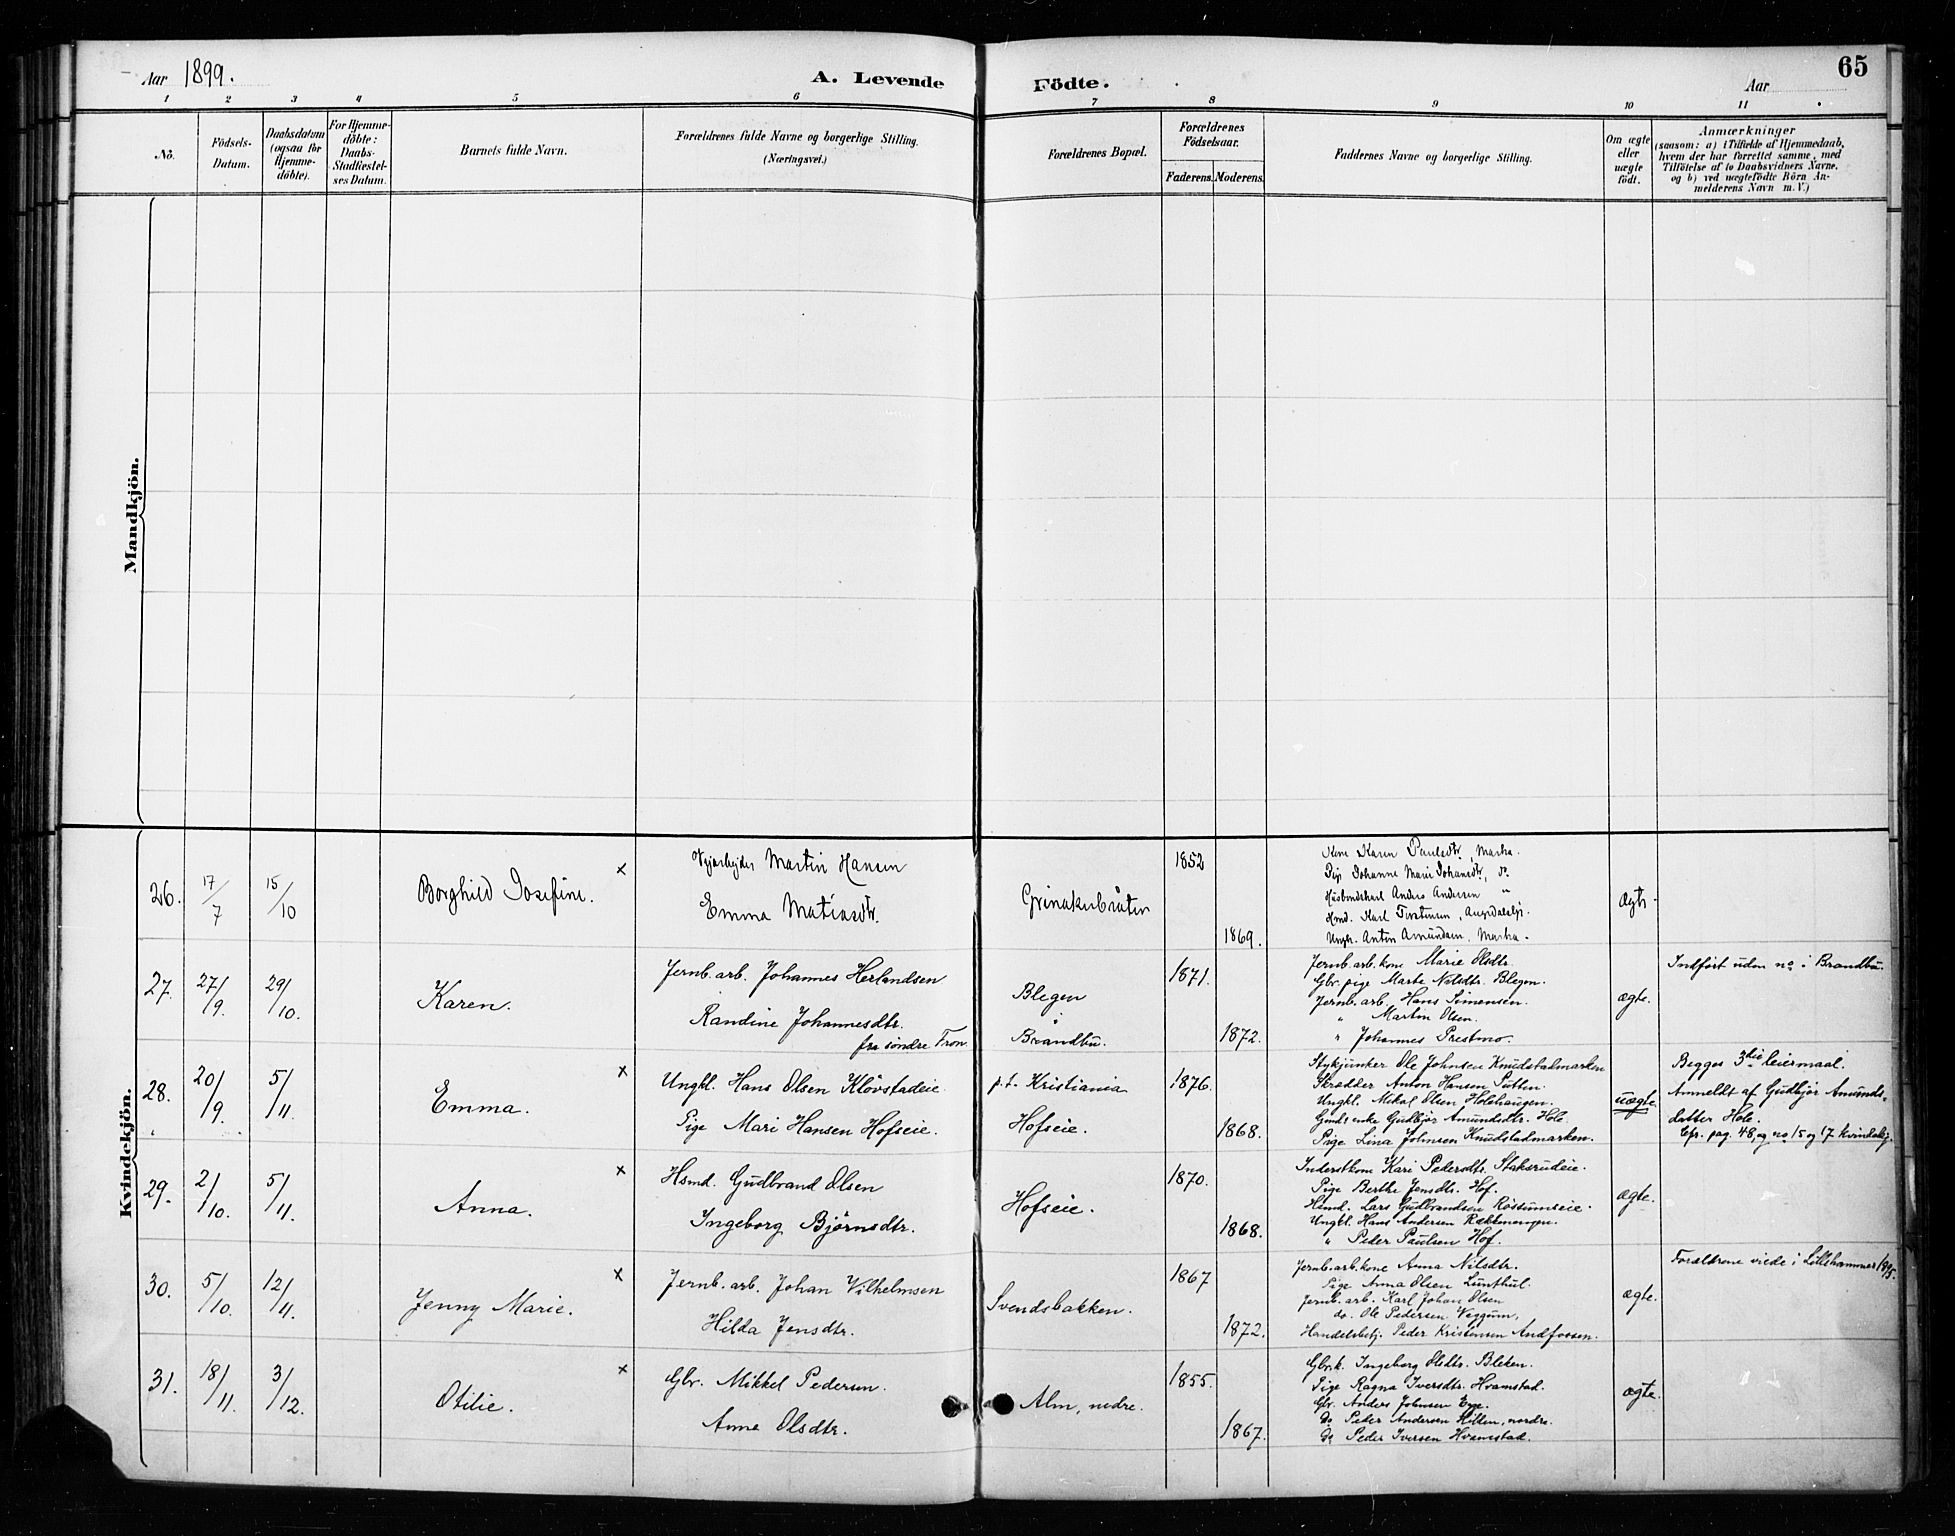 Aar 1899.
A. Levende Födte.
Aar
65
1 2 3 4 5 6 7 8 9 10 11
No.
Födsels-Datum.
Daabsdatum (ogsaa for Hjemme-döbte).
For Hjemme-döbte: Daabs-Stadfæstel-ses Datum.
Barnets fulde Navn.
Forældrenes fulde Navne og borgerlige Stilling.
(Næringsvei.)
Forældrenes Bopæl.
Forældrenes Födselsaar.
Faderens. Moderens.
Faddernes Navne og borgerlige Stilling.
Om ægte eller uægte födt.
Anmærkninger
(saasom: a) i Tilfælde af Hjemmedaab, hvem der har forrettet samme, med Tilföielse af to Daabsvidners Navne. og b) ved uægtefödte Börn An-melderens Navn m. V.)
Mandkjön.
Kvindekjön.
26. 17/7 15/10 Borghild Josefine. x
Martin Hansen
Emma Matiasdtr.
Grinakerbråten
1852
1869.
Kone Karen Paulsdtr., Marka.
Pige Johanne Marie Johansdtr., do
Anders Andersen "
Karl Torstensen,
Ungk. Anton Amundsen, Marka.
ægte.
27. 27/9. 29/10. Karen.
Jernb. arb. Johannes Herlandsen
Randine Johannesdtr.
fra söndre Tron
Blegen
i
Brandbu.
1871.
1872.
Jernb. arb. kone Marie Olsdtr.
Gbr. pige Marte Nilsdtr. Blegen.
Jernb. arb. Hans Simensen.
" Martin Olsen.
" Johannes Prestmo.
ægte.
Indført uden no i Brandbu.
28. 20/9. 5/11. Emma. x
Ungkl. Hans Olsen Klövstadeie
Pige Mari Hansen Hofseie.
p.t. Kristiania
Hofseie.
1876.
1868.
Stykjunker Ole Johnsen Knudstadmarken
Skrædder Anton Hansen Putten.
Ungkl. Mikal Olsen Holehaugen.
Gmds enke Gudbjør Amundsdtr. Hole.
Pige Lina Johnsen Knudstadmarken.
uægte.
Begges 3die leiermaal.
Anmeldt af Gudbjør Amunds-
datter Hole.
Cfr. pag. 48, og no 15 og 17 kvindekj.
29. 2/10. 5/11. Anna. x
Hsmd. Gudbrand Olsen
Ingeborg Björnsdtr.
Hofseie.
1870.
1868.
Inderstkone Kari Pedersdtr. Staksrudeie.
Pige Berthe Jensdtr. Hof.
Hsmd. Lars Gudbrandsen Røssumseie.
Ungkl. Hans Andersen
" Peder Paulsen Hof.
ægte.
30. 5/10. 12/11. Jenny Marie. x
Jernb. arb. Johan Vilhelmsen
Hilda Jensdtr.
Svendsbakken.
1867
1872.
Jernb. arb. kone Anna Nilsdtr.
Pige Anna Olsen Lunthul.
Jernb. arb. Karl Johan Olsen
do. Ole Pedersen Veggum,
Handelsbetj. Peder Kristensen Andfossen.
ægte.
Forældrene viede i Lillehammer 1895.
31. 18/11. 3/12. Otilie. x
Gbr. Mikkel Pedersen.
Anne Olsdtr.
Alm, nedre.
1855.
1867.
Gbr. k. Ingeborg Olsdtr. Bleken.
Pige Ragna Iversdtr. Hvamstad.
Gbr. Anders Johnsen Egge.
Do Peter Andersen Hilden, nordre.
Do Peder Iversen Hvamstad.
ægte.